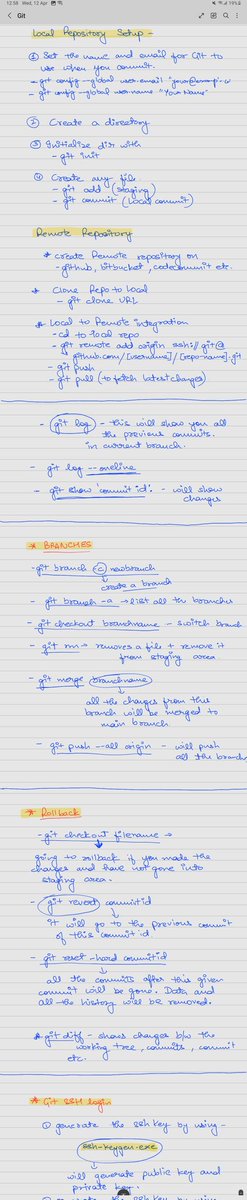 12:58 Wed, 12 Apr
19%
Git
Local Repository Setup -
① Set the name and email for Git to
use when you commit.
- git config --global user.email
- git config --global user.name "Your Name"
② Create a directory
③ Initialise dir with
- git init
④ Create any file.
- git add (staging)
- git commit (local commit)
Remote Repository
* Create Remote repository on
- github, bitbucket, codecommit etc.
* Clone Repo to Local
- git clone URL
* Local to Remote integration
- cd to local repo
- git remote add origin ssh://git@
github.com/[username]/[repo-name].git
- git push
- git pull (to fetch latest changes)
- git log - this will show you all
the previous commits.
in current branch.
- git log --oneline
- git show 'commit id': - will show
changes
* BRANCHES
- git branch -c newbranch
create a branch
- git branch -a → list all the branches
- git checkout branchname - switch branch
- git rm → removes a file + remove it
from staging area.
- git merge branchname
all the changes from this
branch will be merged to
main branch.
- git push --all origin - will push
all the branch
* Rollback
- git checkout filename →
going to rollback if you made the
changes and have not gone into
staging area.
- git revert commitid
it will go to the previous commit
of this commit id.
- git reset --hard commitid
all the commits after this given
commit will be gone. Data and
all the history will be removed.
* git diff - shows changes b/w the
working tree, commits, commit
etc.
* Git SSH login
① generate the ssh key by using -
ssh-keygen.exe
will generate public key and
private key.